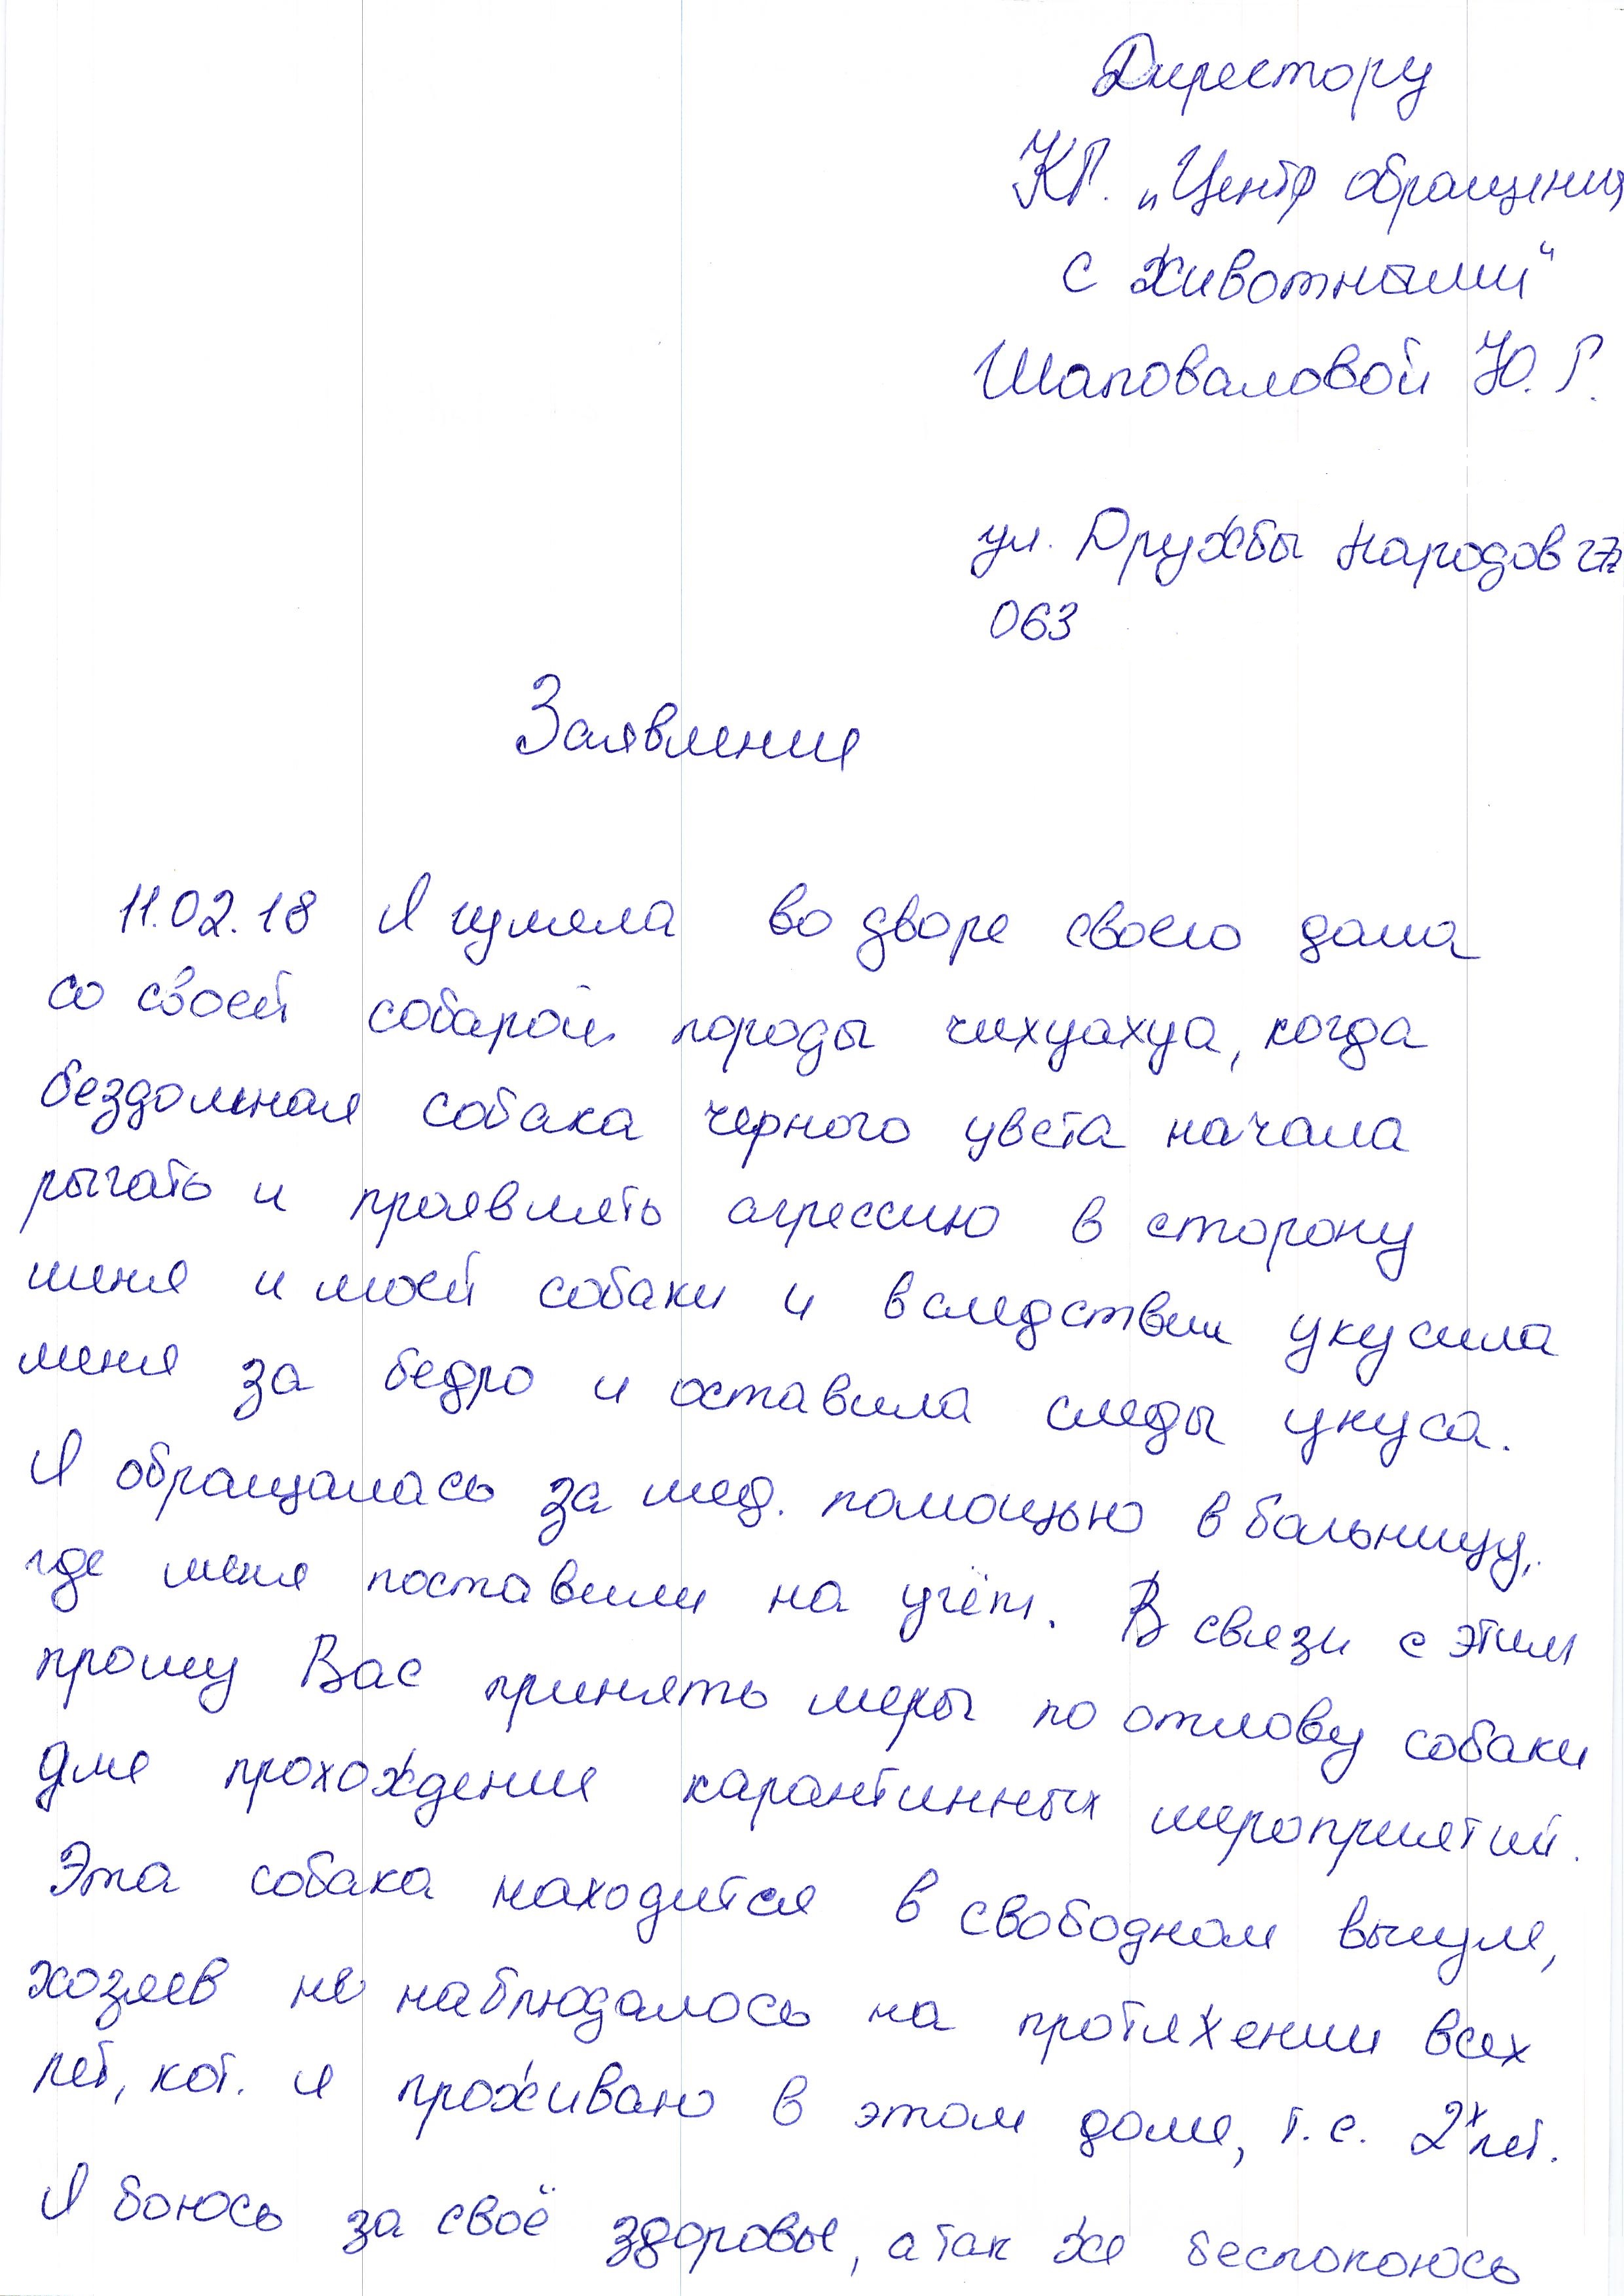 Директору
КП. „Центр обращения
с животными“
Шаповаловой Ю. Г.
ул. Дружбы Народов
063
Заявление
11.02.18 Я гуляла во дворе своего дома
со своей собакой породы чихуахуа, когда
бездомная собака черного цвета начала
рычать и проявлять агрессию в сторону
меня и моей собаки и вследствии укусила
меня за бедро и оставила следы укуса.
Я обращалась за мед. помощью в больницу,
где меня поставили на учёт. В связи с этим
прошу Вас принять меры по отлову собаки
для прохождения карантинных мероприятий.
Эта собака находится в свободном выгуле,
хозяев не наблюдалось на протяжении всех
лет, кот. я проживаю в этом доме, т.е. 2х лет.
Я боюсь за своё здоровье, а так же беспокоюсь